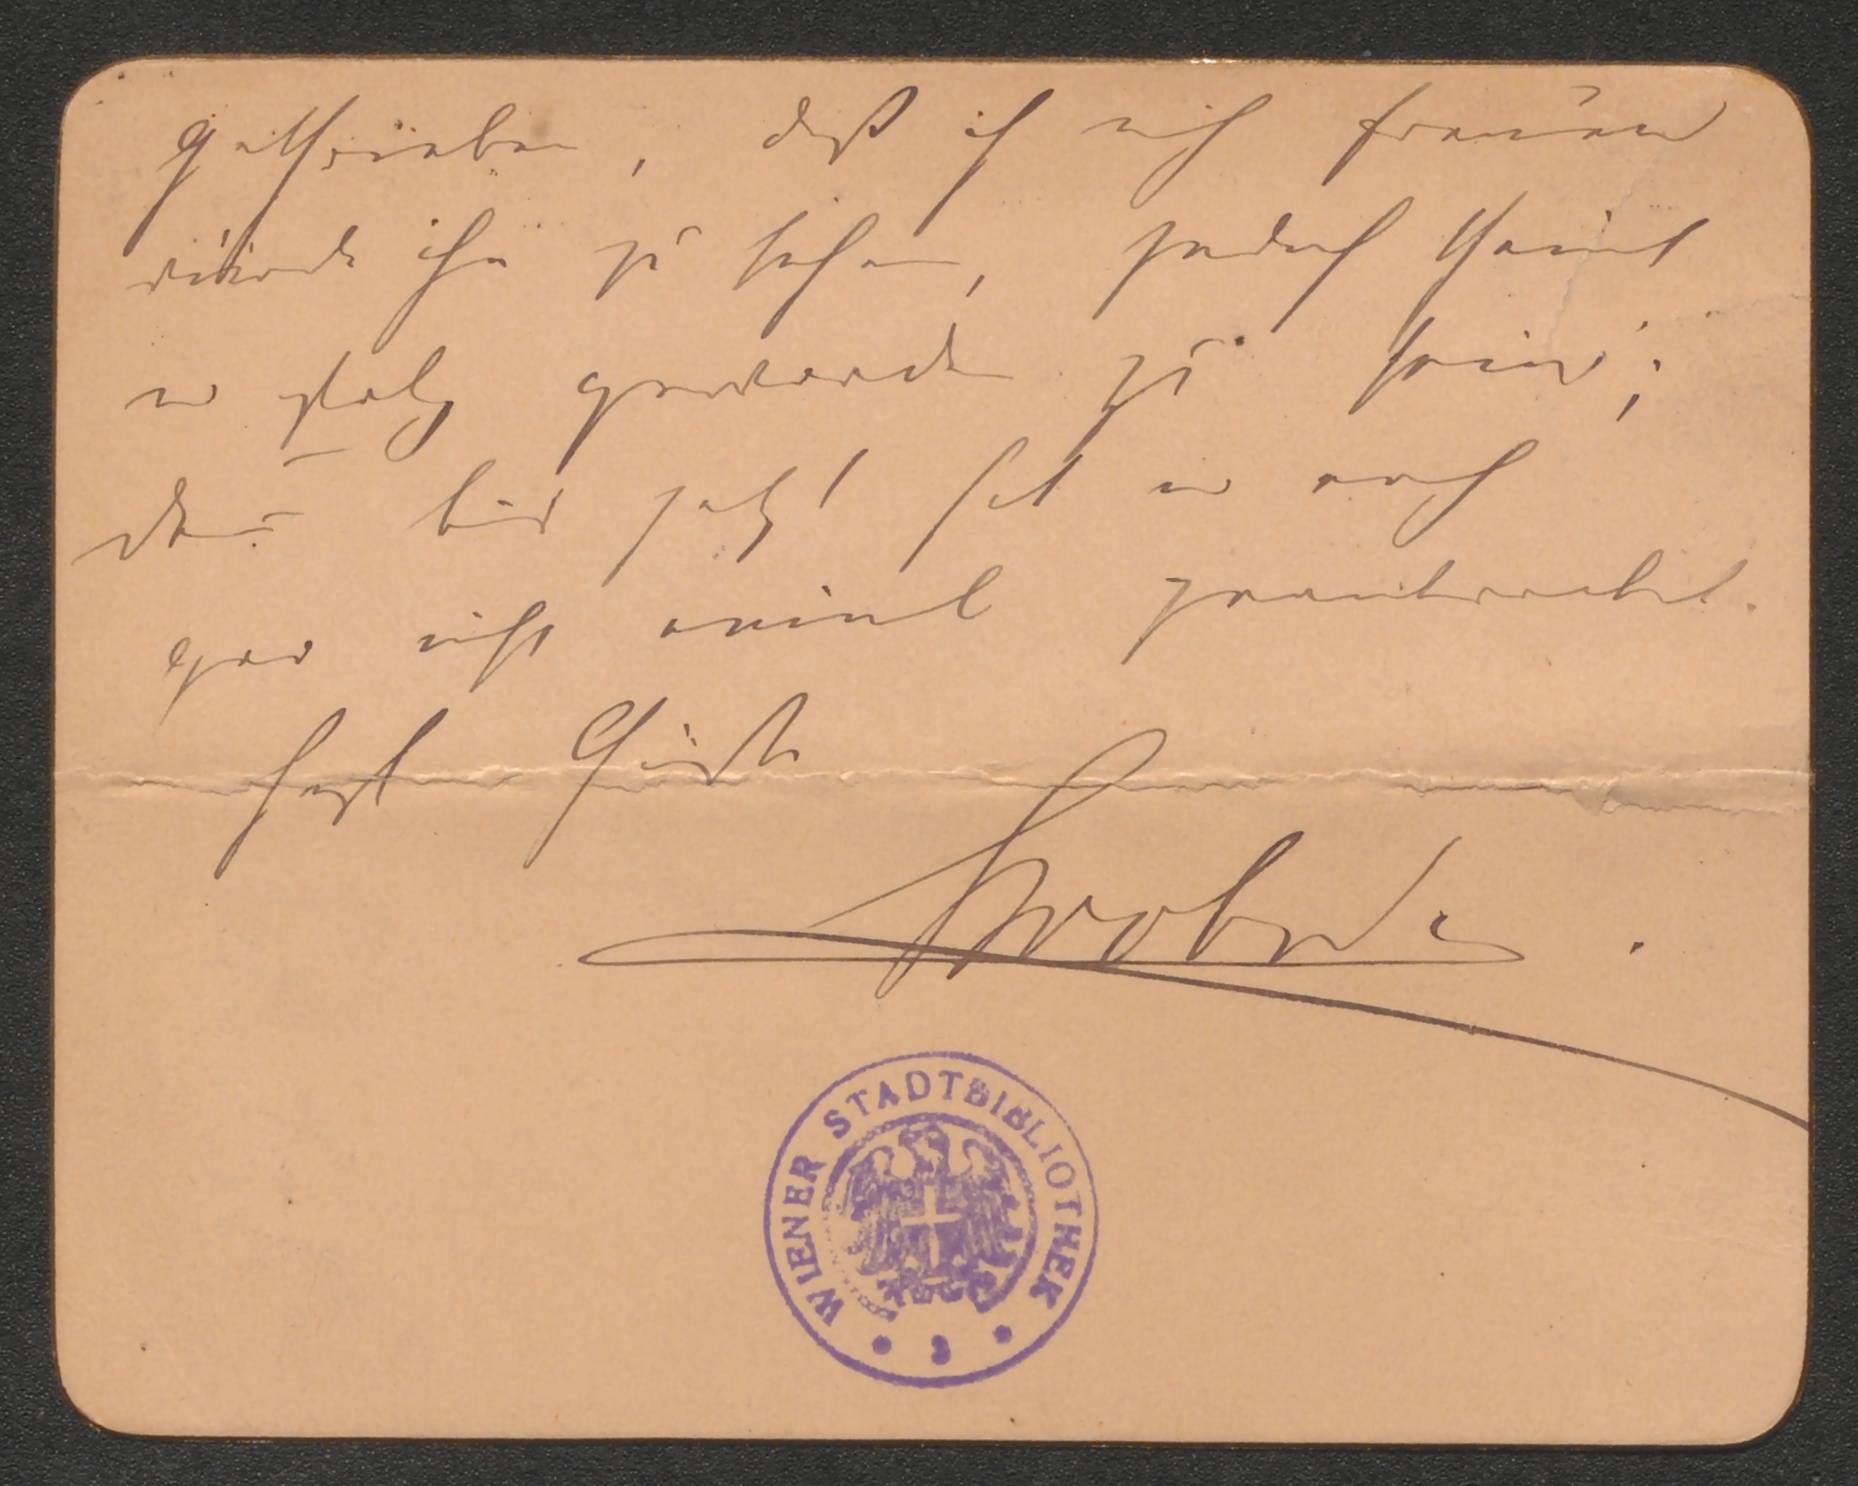 geschrieben, daß ich mich freuen
würde ihn zu sehen, jedoch scheint
er stolz geworden zu sein;
deñ bis jetzt hat er noch
gar nicht einmal geantwortet.
Herzl Grüße
WIENER STADTBIBLIOTHEK